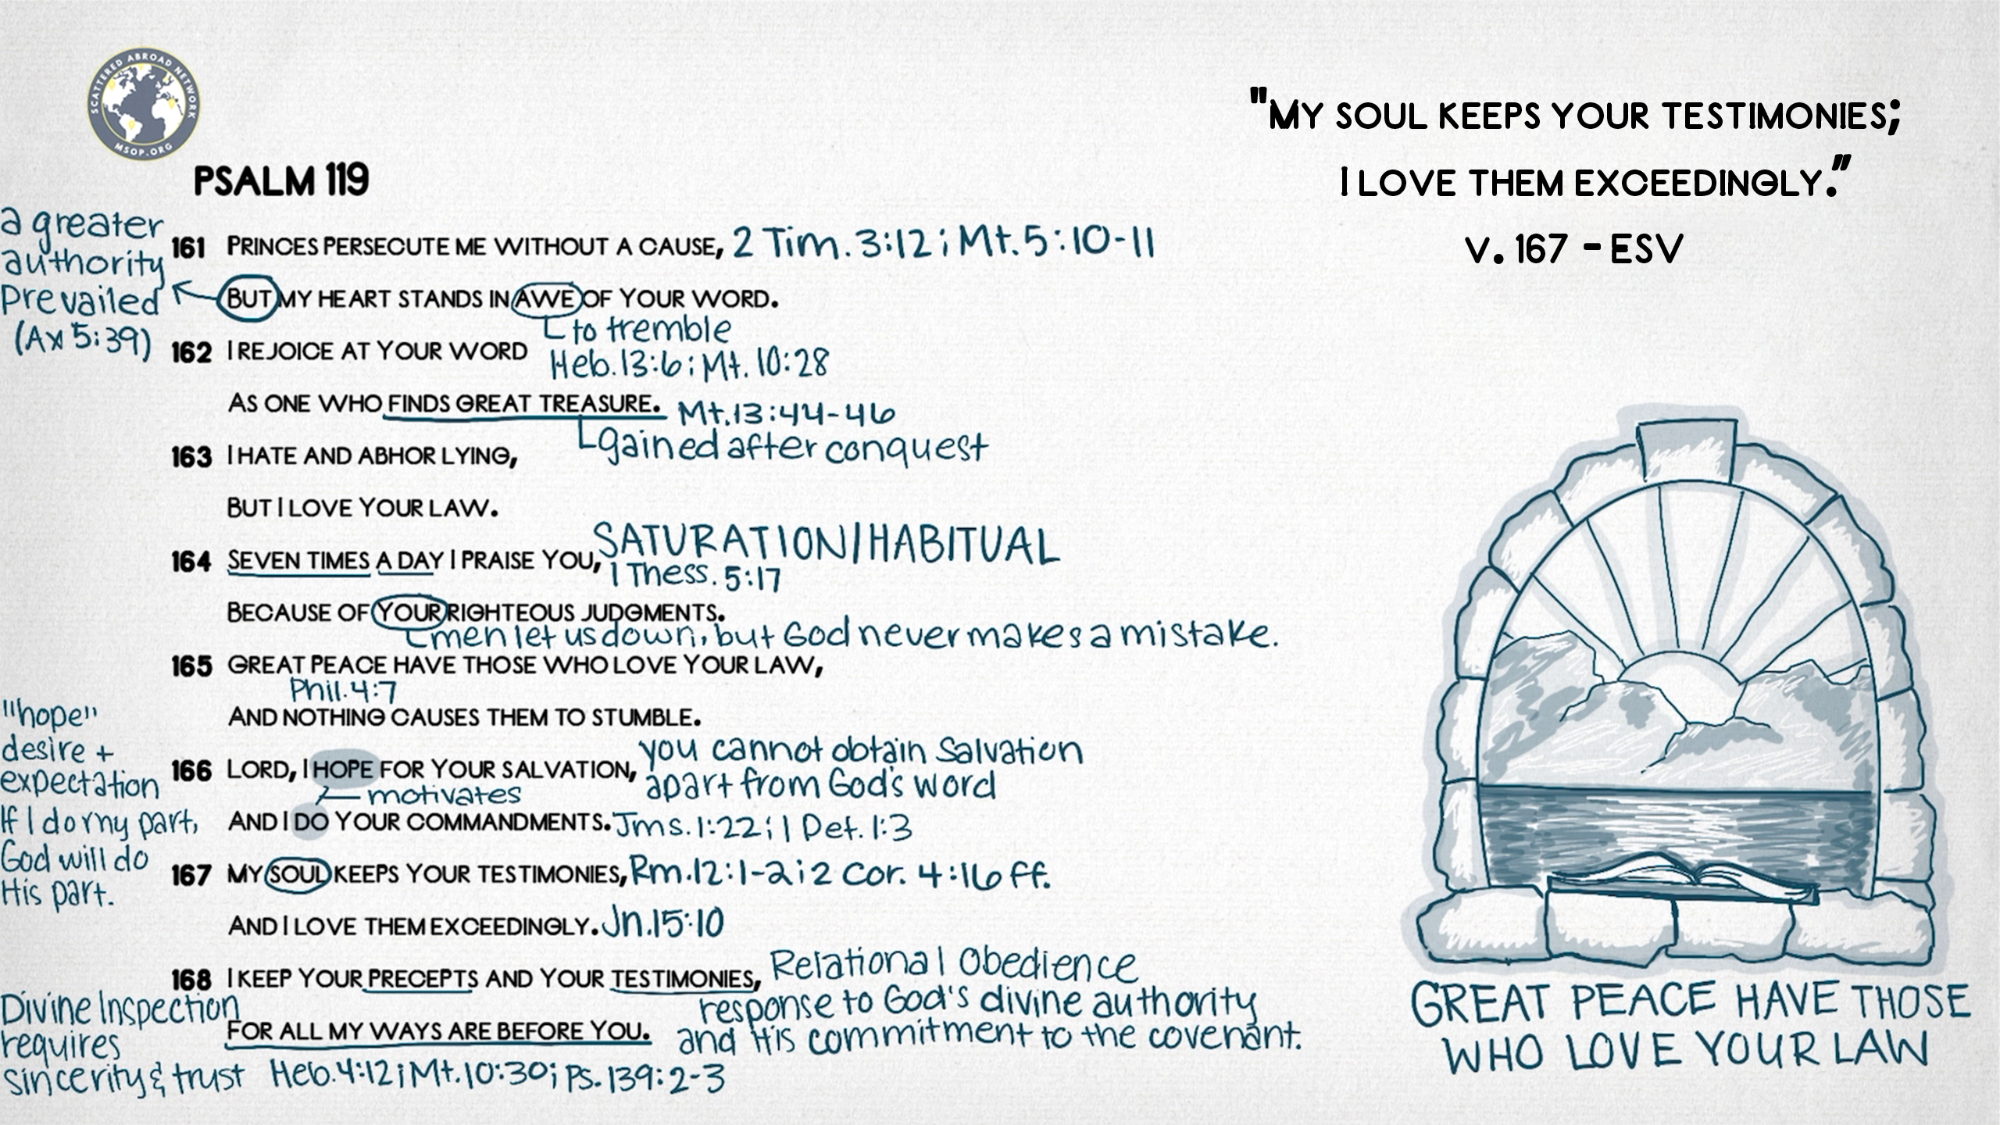 SCATTERED ABROAD NETWORK
MSOP.ORG
"MY SOUL KEEPS YOUR TESTIMONIES;
I LOVE THEM EXCEEDINGLY."
V. 167 - ESV
PSALM 119
a greater
authority
prevailed
(Ax 5:39)
161 PRINCES PERSECUTE ME WITHOUT A CAUSE, 2 Tim. 3:12; Mt. 5:10-11
BUT MY HEART STANDS IN AWE OF YOUR WORD.
to tremble
Heb. 13:6; Mt. 10:28
162 I REJOICE AT YOUR WORD
AS ONE WHO FINDS GREAT TREASURE. Mt. 13:44-46
gained after conquest
163 I HATE AND ABHOR LYING,
BUT I LOVE YOUR LAW.
SATURATION/HABITUAL
164 SEVEN TIMES A DAY I PRAISE YOU, 1 Thess. 5:17
BECAUSE OF YOUR RIGHTEOUS JUDGMENTS.
men let us down, but God never makes a mistake.
165 GREAT PEACE HAVE THOSE WHO LOVE YOUR LAW,
Phil. 4:7
AND NOTHING CAUSES THEM TO STUMBLE.
"hope"
desire +
expectation
If I do my part,
God will do
His part.
166 LORD, I HOPE FOR YOUR SALVATION, you cannot obtain Salvation
apart from God's word
motivates
AND I DO YOUR COMMANDMENTS. Jms. 1:22; 1 Pet. 1:3
167 MY SOUL KEEPS YOUR TESTIMONIES, Rm. 12:1-2; 2 Cor. 4:16 ff.
AND I LOVE THEM EXCEEDINGLY. Jn. 15:10
168 I KEEP YOUR PRECEPTS AND YOUR TESTIMONIES, Relational Obedience
response to God's divine authority
and His commitment to the covenant.
FOR ALL MY WAYS ARE BEFORE YOU.
Divine Inspection
requires
sincerity & trust Heb. 4:12; Mt. 10:30; Ps. 139:2-3
GREAT PEACE HAVE THOSE
WHO LOVE YOUR LAW